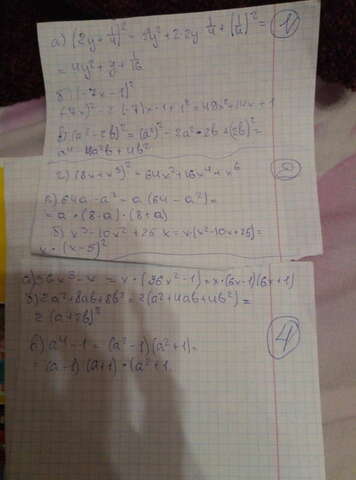 а) (2y + 1/4)² = 4y² + 2·2y · 1/4 + (1/4)² =
= 4y² + y + 1/16
1
б) (-7x - 1)²
(-7x)² - 2·(-7)x·1 + 1² = 49x² + 14x + 1
в) (a² - 2b)² = (a²)² - 2a² · 2b + (2b)² =
a⁴ - 4a²b + 4b²
г) (8x + x³)² = 64x² + 16x⁴ + x⁶
2
а) 64a - a³ = a (64 - a²) =
= a · (8 - a) · (8 + a)
б) x³ - 10x² + 25x = x·(x² - 10x + 25) =
x · (x - 5)²
а) 36x³ - x = x · (36x² - 1) = x · (6x - 1)(6x + 1)
б) 2a² + 8ab + 8b² = 2(a² + 4ab + 4b²) =
2 (a + 2b)²
4
в) a⁴ - 1 = (a² - 1)(a² + 1) =
= (a - 1) (a + 1) · (a² + 1